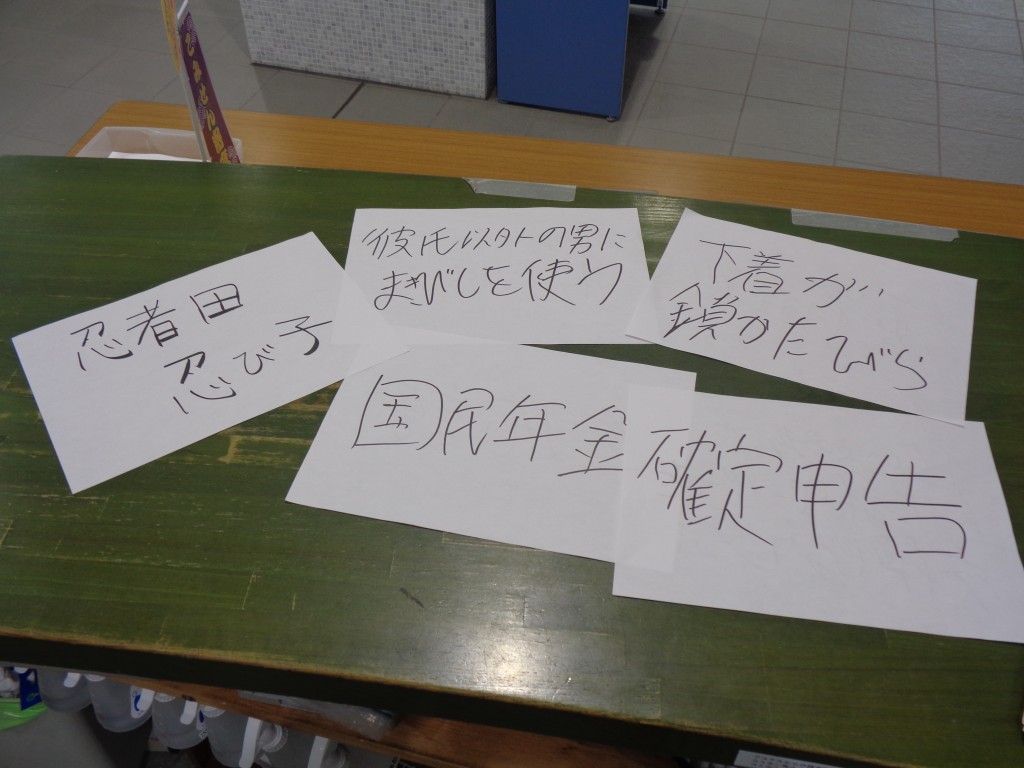 忍者田
忍び子
彼氏以外の男に
まきびしを使う
下着が
鎖かたびら
国民年金
確定申告